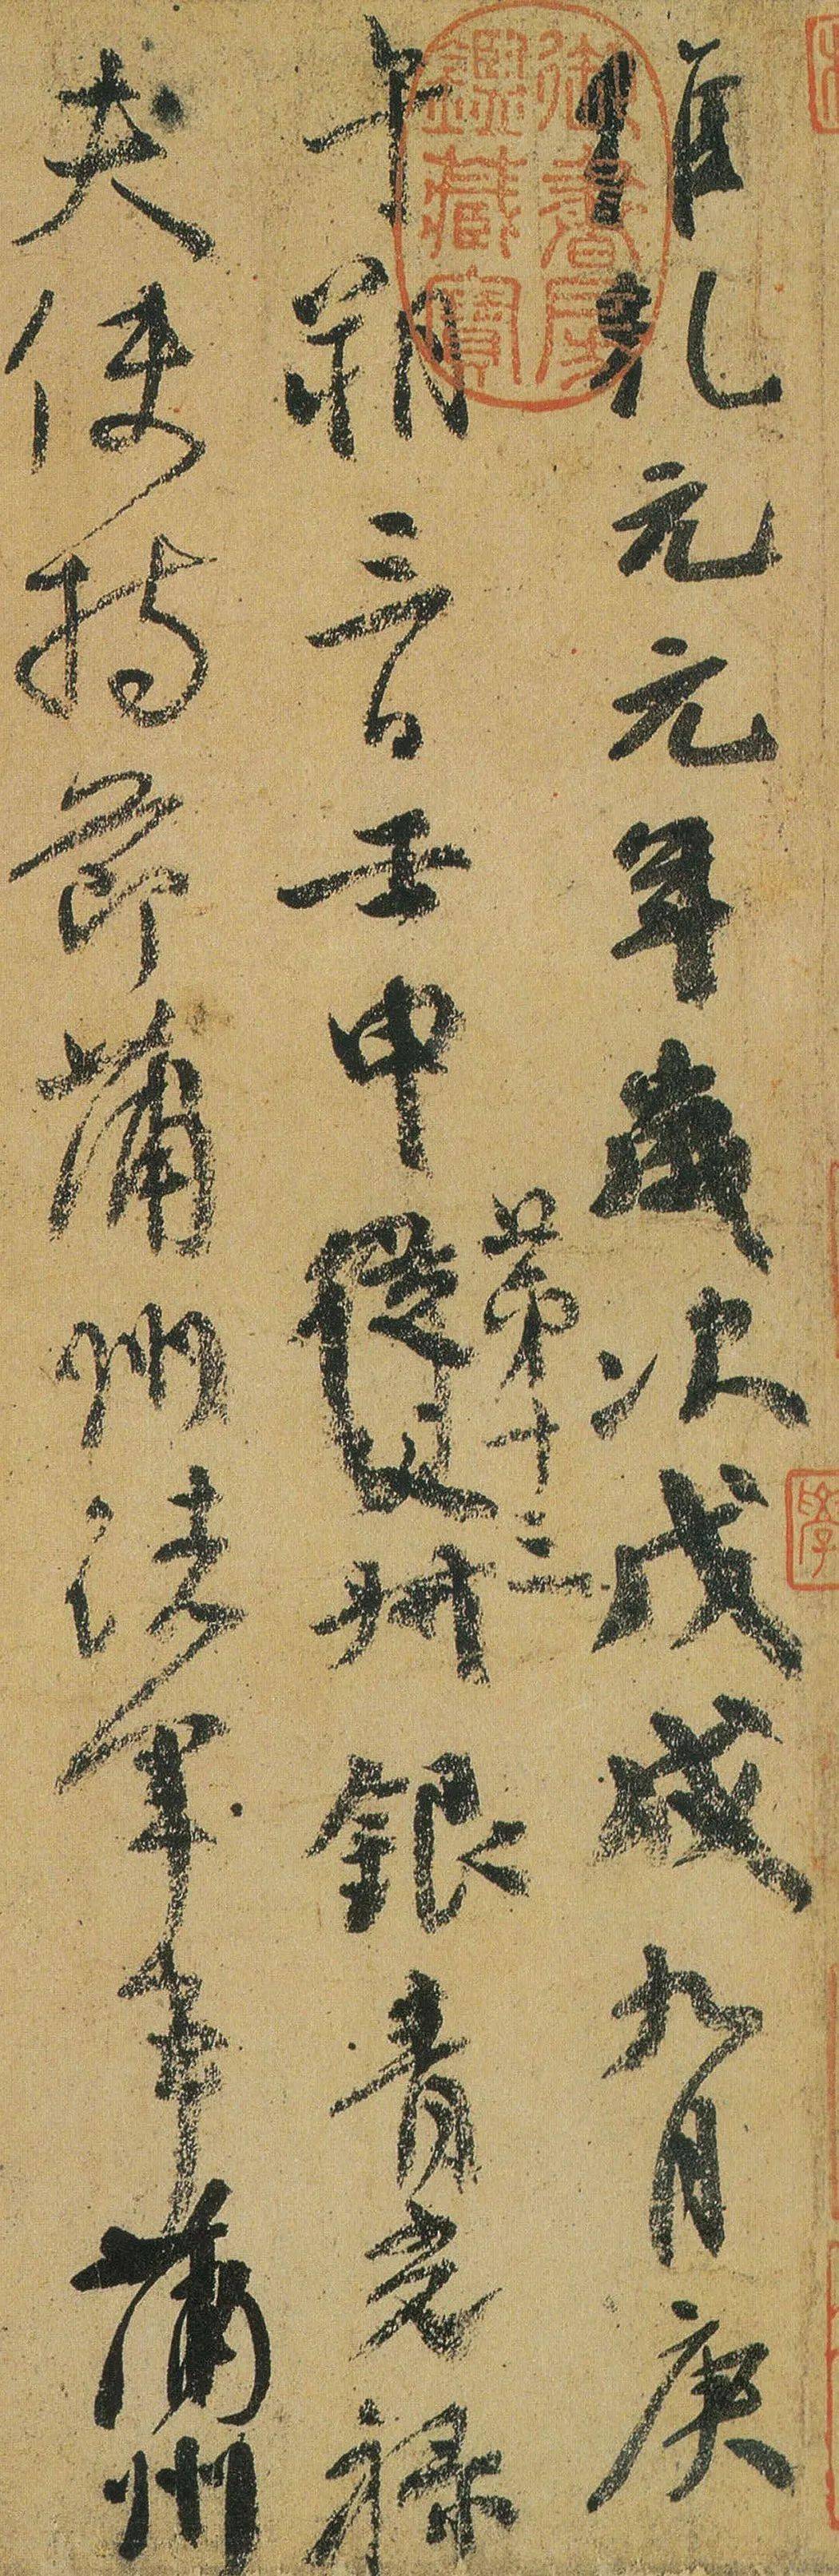 維乾元元年歲次戊戌九月庚
午朔三日壬申第十三從父叔銀青光祿
夫使持節蒲州諸軍事蒲州
御書房鑑藏寶